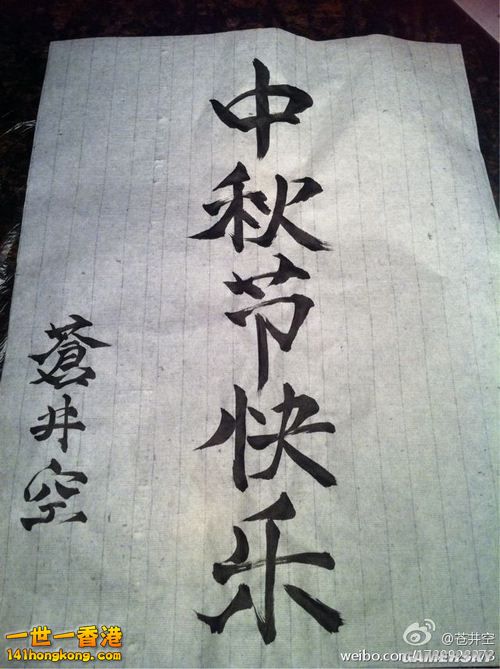 中秋节快乐
蒼井空
一世一香港
141hongkong.com
@苍井空